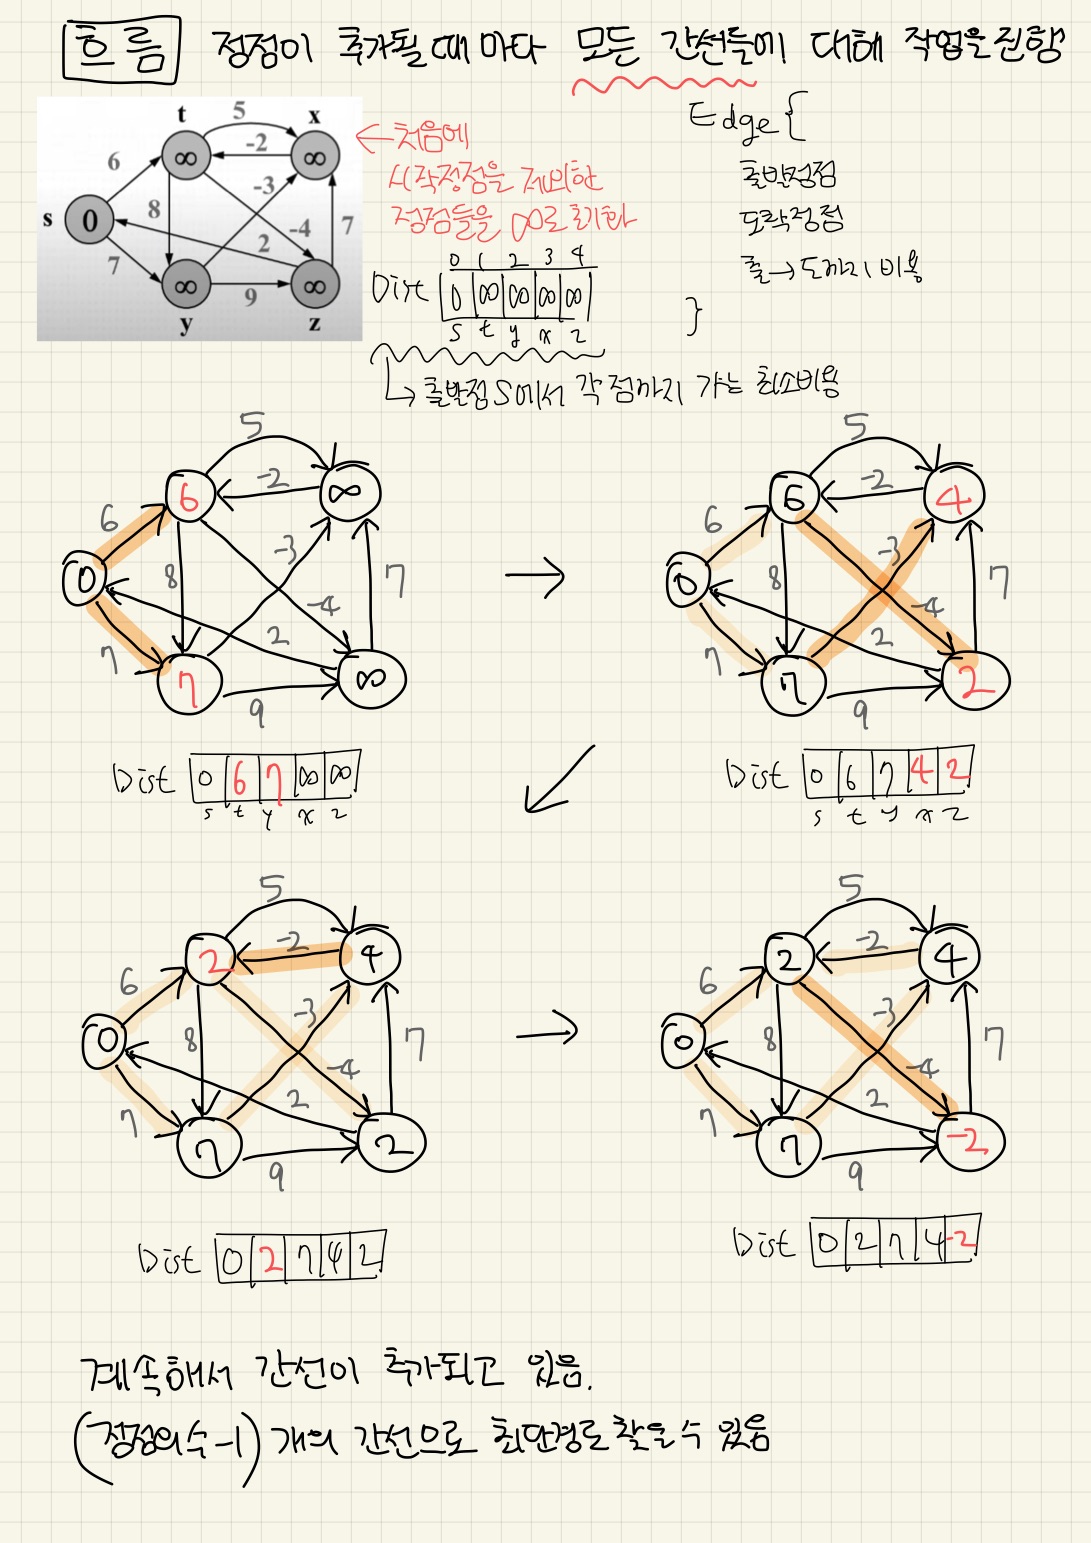 흐름 정점이 추가될 때마다 모든 간선들에 대해 작업을 진행
t 5 x
∞ -2 ∞
6 -3
s 0 8 -4 7
2
7 ∞ 9 ∞
y z
← 처음에
시작정점을 제외한
정점들을 ∞로 초기화
Edge{
출발정점
도착정점
출→도까지 비용
}
0 1 2 3 4
Dist 0 ∞ ∞ ∞ ∞
s t y x z
↳ 출발점 S에서 각 점까지 가는 최소비용
5
6 -2 ∞
6 -3
0 8 -4 7
2
7 7 9 ∞
Dist 0 6 7 ∞ ∞
s t y x z
→
5
6 -2 4
6 -3
0 8 -4 7
2
7 7 9 2
Dist 0 6 7 4 2
s t y x z
5
2 -2 4
6 -3
0 8 -4 7
2
7 7 9 2
Dist 0 2 7 4 2
→
5
2 -2 4
6 -3
0 8 -4 7
2
7 7 9 -2
Dist 0 2 7 4 -2
계속해서 간선이 추가되고 있음.
(정점의수-1)개의 간선으로 최단경로 찾을 수 있음